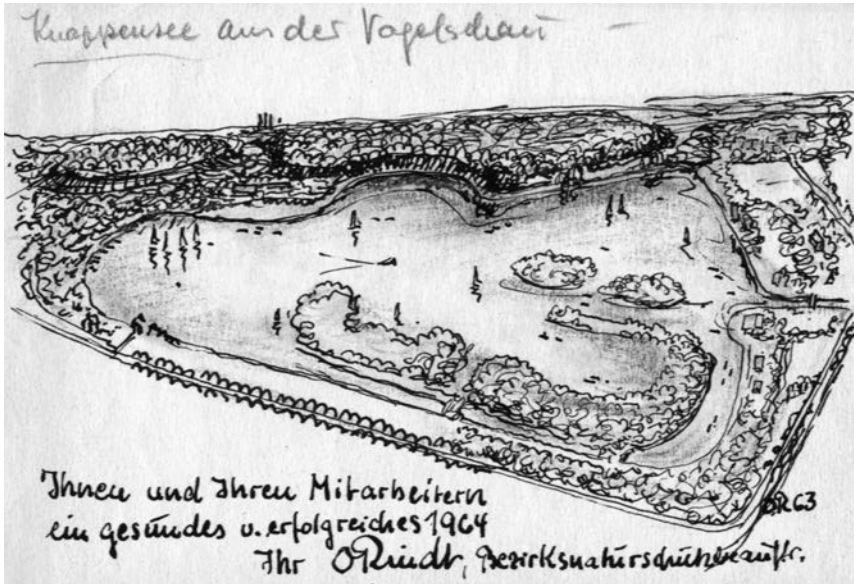 Knappensee aus der Vogelschau
OR63
Ihnen und Ihren Mitarbeitern
ein gesundes u. erfolgreiches 1964
Ihr O Rindt, Bezirksnaturschutzbeauftr.